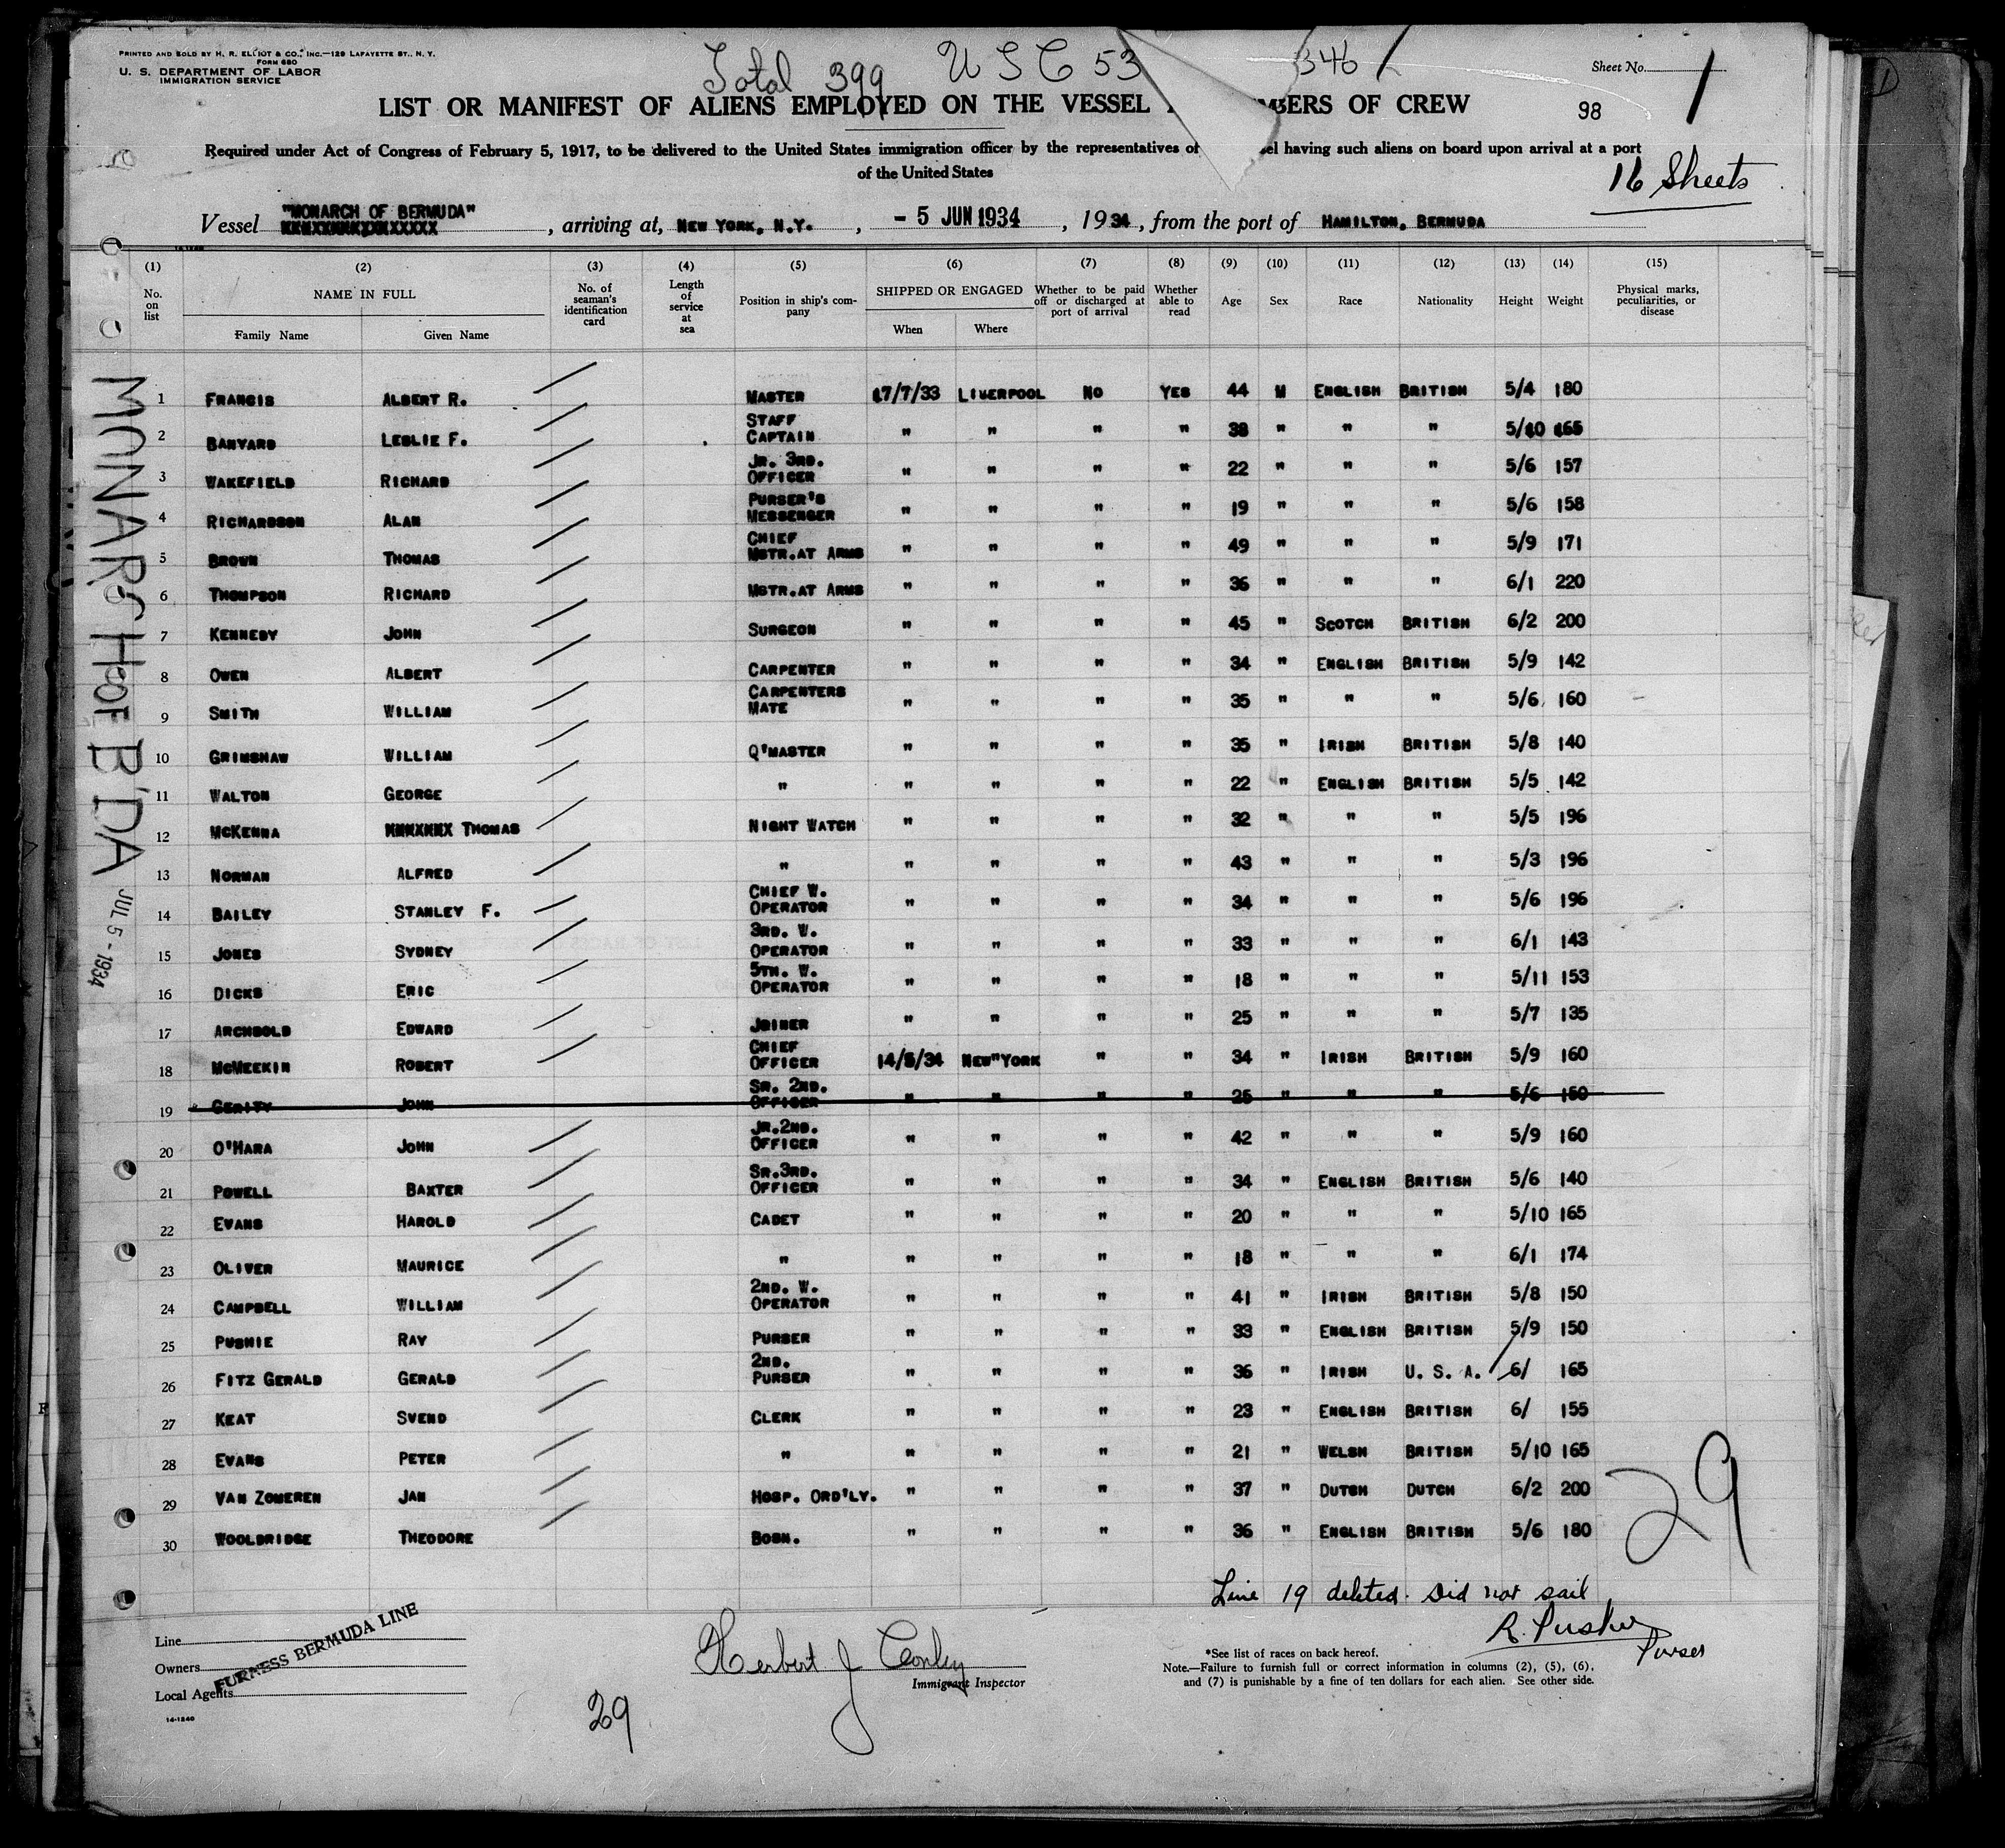 PRINTED AND SOLD BY H. R. ELLIOT & CO., INC.—129 LAFAYETTE ST., N. Y.
FORM 680
U. S. DEPARTMENT OF LABOR
IMMIGRATION SERVICE
Total 399 USC 53 346
Sheet No. 1
LIST OR MANIFEST OF ALIENS EMPLOYED ON THE VESSEL MBERS OF CREW
98
Required under Act of Congress of February 5, 1917, to be delivered to the United States immigration officer by the representatives of having such aliens on board upon arrival at a port
of the United States
16 Sheets
Vessel "MONARCH OF BERMUDA", arriving at, NEW YORK, N.Y., - 5 JUN 1934, 1934, from the port of HAMILTON, BERMUDA
(1) (2) (3) (4) (5) (6) (7) (8) (9) (10) (11) (12) (13) (14) (15)
No. on list NAME IN FULL Family Name Given Name No. of seaman's identification card Length of service at sea Position in ship's company SHIPPED OR ENGAGED When Where Whether to be paid off or discharged at port of arrival Whether able to read Age Sex Race Nationality Height Weight Physical marks, peculiarities, or disease
1 FRANCIS ALBERT R. MASTER 17/7/33 LIVERPOOL NO YES 44 M ENGLISH BRITISH 5/4 180
2 BANYARD LESLIE F. STAFF CAPTAIN " " " " 38 " " " 5/10 165
3 WAKEFIELD RICHARD JR. 3RD. OFFICER " " " " 22 " " " 5/6 157
4 RICHARDSON ALAN PURSER'S MESSENGER " " " " 19 " " " 5/6 158
5 BROWN THOMAS CHIEF MSTR.AT ARMS " " " " 49 " " " 5/9 171
6 THOMPSON RICHARD MSTR.AT ARMS " " " " 36 " " " 6/1 220
7 KENNEDY JOHN SURGEON " " " " 45 " SCOTCH BRITISH 6/2 200
8 OWEN ALBERT CARPENTER " " " " 34 " ENGLISH BRITISH 5/9 142
9 SMITH WILLIAM CARPENTERS MATE " " " " 35 " " " 5/6 160
10 GRIMSHAW WILLIAM Q'MASTER " " " " 35 " IRISH BRITISH 5/8 140
11 WALTON GEORGE " " " " " 22 " ENGLISH BRITISH 5/5 142
12 MCKENNA THOMAS NIGHT WATCH " " " " 32 " " " 5/5 196
13 NORMAN ALFRED " " " " " 43 " " " 5/3 196
14 BAILEY STANLEY F. CHIEF W. OPERATOR " " " " 34 " " " 5/6 196
15 JONES SYDNEY 3RD. W. OPERATOR " " " " 33 " " " 6/1 143
16 DICKS ERIC 5TH. W. OPERATOR " " " " 18 " " " 5/11 153
17 ARCHBOLD EDWARD JOINER " " " " 25 " " " 5/7 135
18 MCMEEKIN ROBERT CHIEF OFFICER 14/5/34 NEW"YORK " " 34 " IRISH BRITISH 5/9 160
19 GERITY JOHN SR. 2ND. OFFICER " " " " 25 " " " 5/6 150
20 O'HARA JOHN JR.2ND. OFFICER " " " " 42 " " " 5/9 160
21 POWELL BAXTER SR.3RD. OFFICER " " " " 34 " ENGLISH BRITISH 5/6 140
22 EVANS HAROLD CADET " " " " 20 " " " 5/10 165
23 OLIVER MAURICE " " " " " 18 " " " 6/1 174
24 CAMPBELL WILLIAM 2ND. W. OPERATOR " " " " 41 " IRISH BRITISH 5/8 150
25 PUSHIE RAY PURSER " " " " 33 " ENGLISH BRITISH 5/9 150
26 FITZ GERALD GERALD 2ND. PURSER " " " " 36 " IRISH U. S. A. 6/ 165
27 KEAT SVEND CLERK " " " " 23 " ENGLISH BRITISH 6/ 155
28 EVANS PETER " " " " " 21 " WELSH BRITISH 5/10 165
29 VAN ZOMEREN JAN HOSP. ORD'LY. " " " " 37 " DUTCH DUTCH 6/2 200
30 WOOLDRIDGE THEODORE BOSN. " " " " 36 " ENGLISH BRITISH 5/6 180
29
Line 19 deleted. Did not sail
R. Pushie
Purser
Line
Owners
Local Agents
FURNESS BERMUDA LINE
14-1240
29
Herbert J Conley
Immigrant Inspector
*See list of races on back hereof.
Note.—Failure to furnish full or correct information in columns (2), (5), (6),
and (7) is punishable by a fine of ten dollars for each alien. See other side.
MONARCH OF B'DA
JUL 5 - 1934